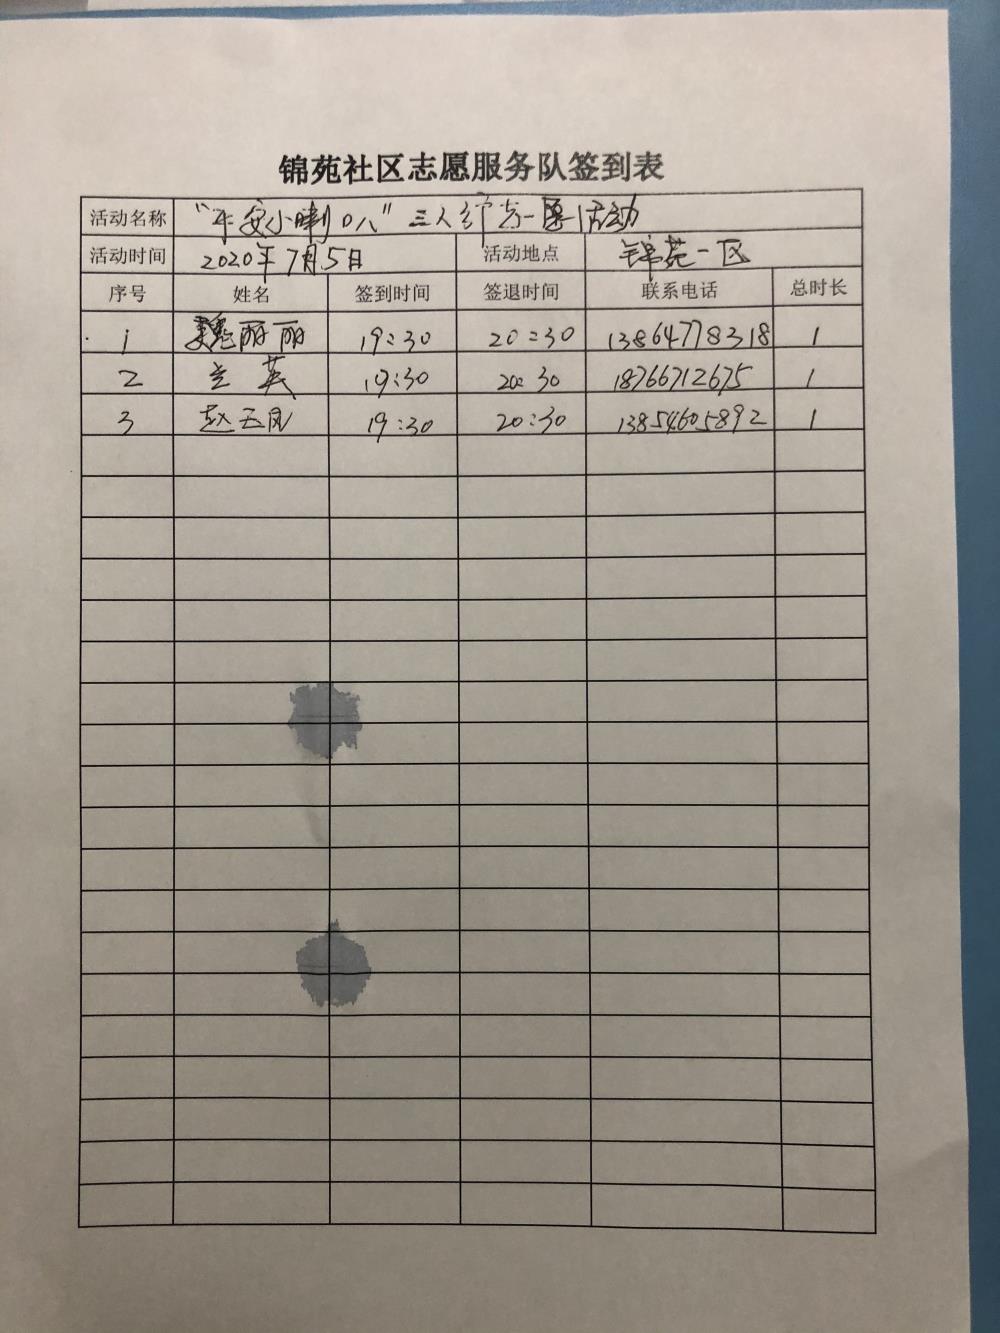 锦苑社区志愿服务队签到表
活动名称 “平安小喇叭”三人行
活动
活动时间 2020年7月5日 活动地点 锦苑一区
序号 姓名 签到时间 签退时间 联系电话 总时长
1 魏丽丽 19:30 20:30 13864778318 1
2 英 19:30 20:30 18766712675 1
3 赵玉凤 19:30 20:30 13854605892 1